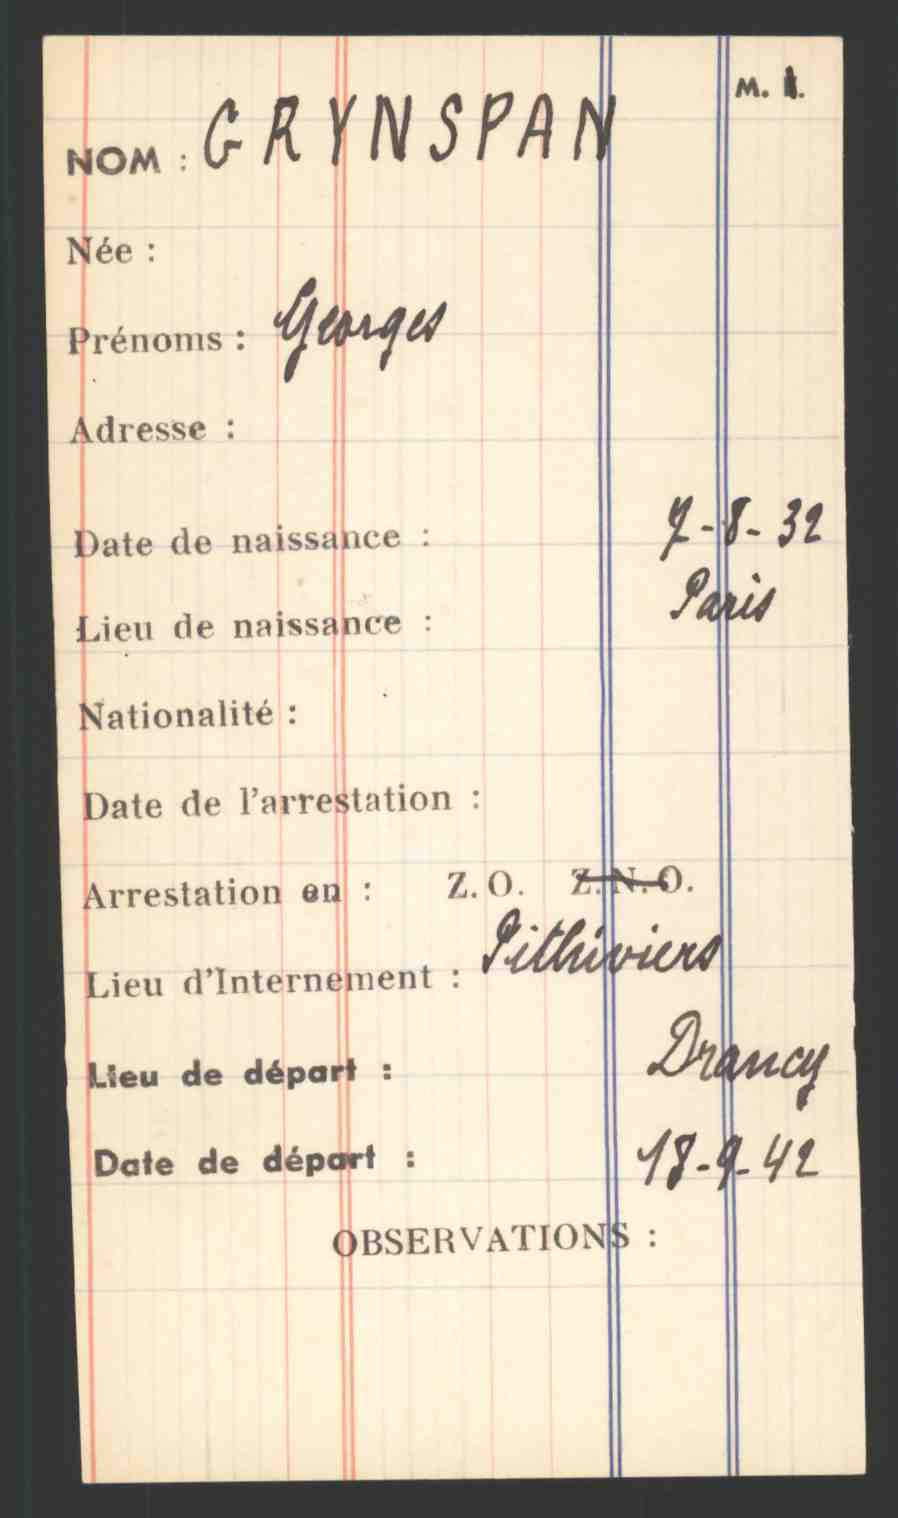 M. I.
NOM : GRYNSPAN
Née :
Prénoms : Georges
Adresse :
Date de naissance : 7-8-32
Lieu de naissance : Paris
Nationalité :
Date de l'arrestation :
Arrestation en : Z. O. Z. N. O.
Lieu d'Internement : Pithiviers
Lieu de départ : Drancy
Date de départ : 18-9-42
OBSERVATIONS :